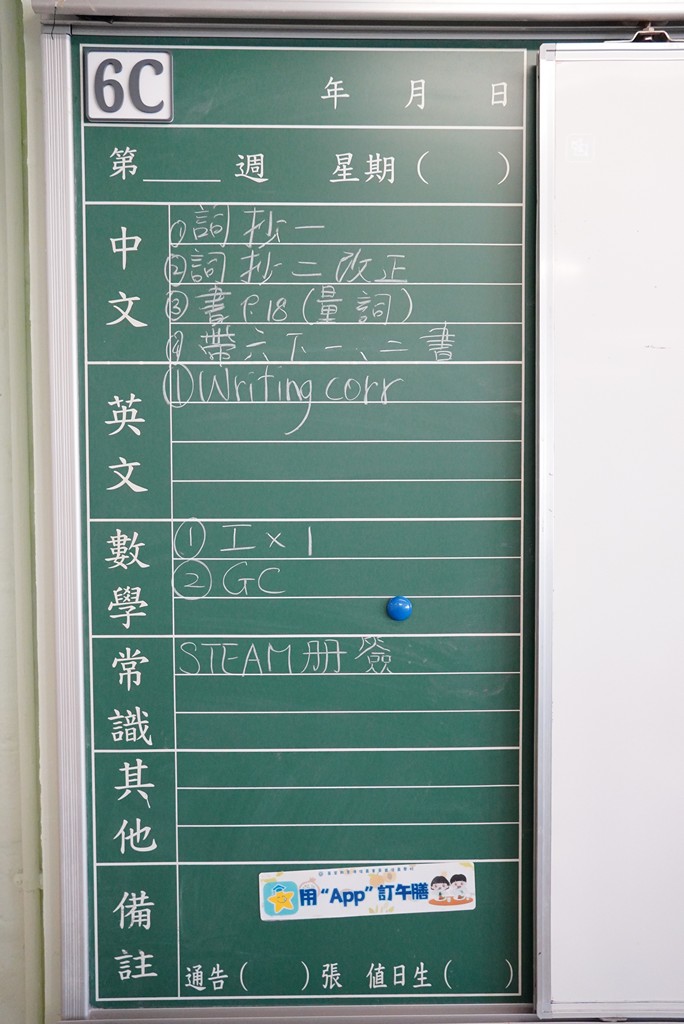 6C
年 月 日
第____週 星期( )
中文
①詞抄一
②詞抄二改正
③書P.18(量詞)
④帶六下一、二書
英文
①Writing corr
數學
① 工×1
② GC
常識
STEAM冊 簽
其他
備註
用“App”訂午膳
通告( )張 值日生( )